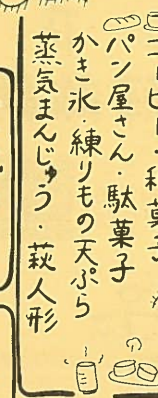 コーヒー・和菓子
パン屋さん・駄菓子
かき氷・練りもの天ぷら
蒸気まんじゅう・萩人形